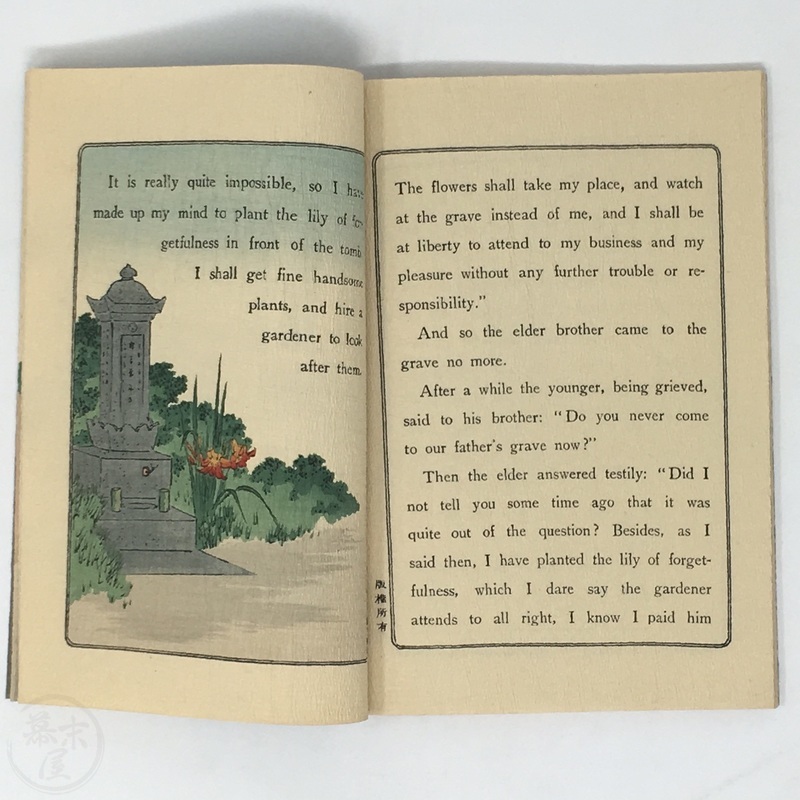 It is really quite impossible, so I have
made up my mind to plant the lily of for-
getfulness in front of the tomb
I shall get fine handsome
plants, and hire a
gardener to look
after them.
The flowers shall take my place, and watch
at the grave instead of me, and I shall be
at liberty to attend to my business and my
pleasure without any further trouble or re-
sponsibility.”
And so the elder brother came to the
grave no more.
After a while the younger, being grieved,
said to his brother: “Do you never come
to our father's grave now?”
Then the elder answered testily: “Did I
not tell you some time ago that it was
quite out of the question? Besides, as I
said then, I have planted the lily of forget-
fulness, which I dare say the gardener
attends to all right, I know I paid him
版權所有
幕末屋